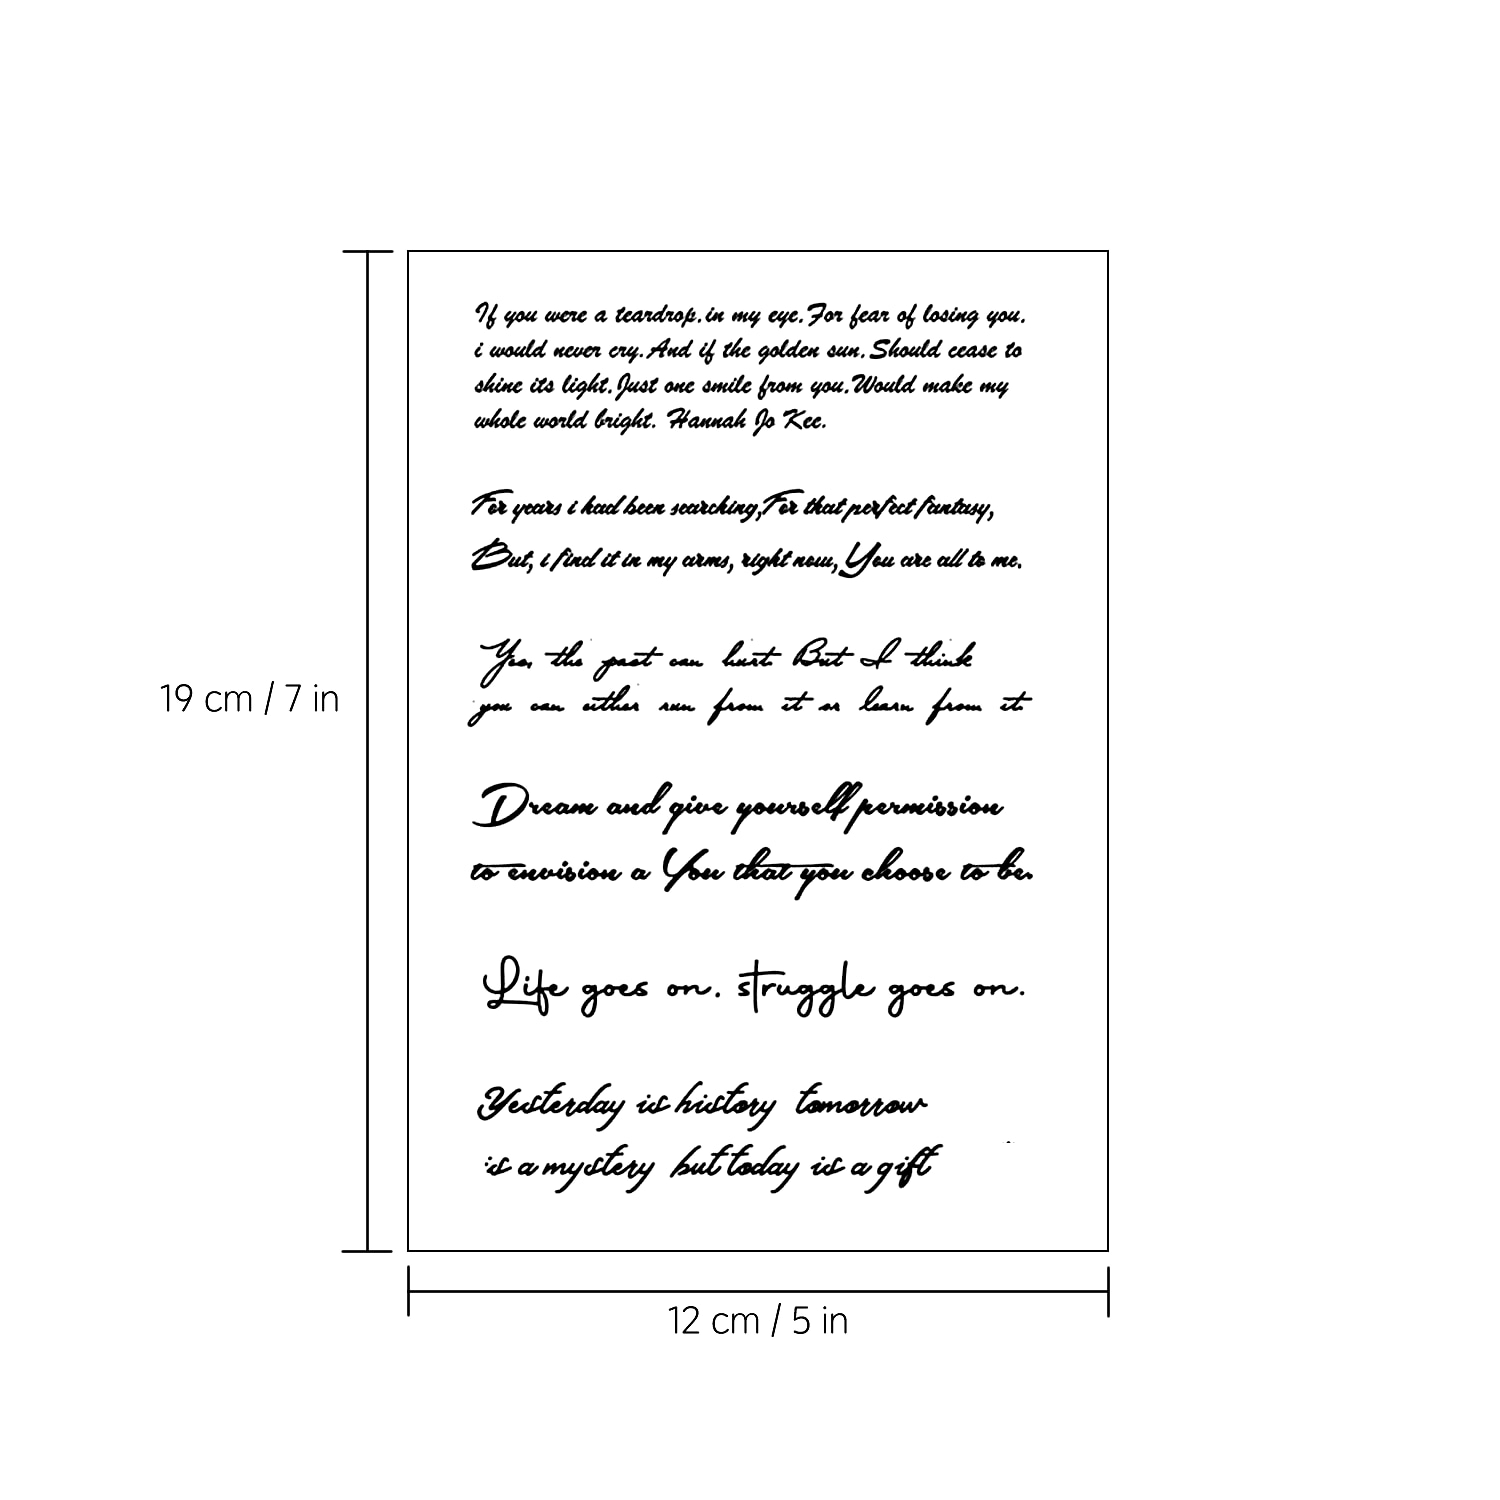 If you were a teardrop.in my eye.For fear of losing you.
i would never cry.And if the golden sun.Should cease to
shine its light.Just one smile from you.Would make my
whole world bright. Hannah Jo Kee.
For years i had been searching,For that perfect fantasy,
But, i find it in my arms, right now,You are all to me.
Yes, the past can hurt. But I think
you can either run from it or learn from it.
Dream and give yourself permission
to envision a You that you choose to be.
Life goes on. struggle goes on.
Yesterday is history tomorrow
is a mystery but today is a gift
19 cm / 7 in
12 cm / 5 in